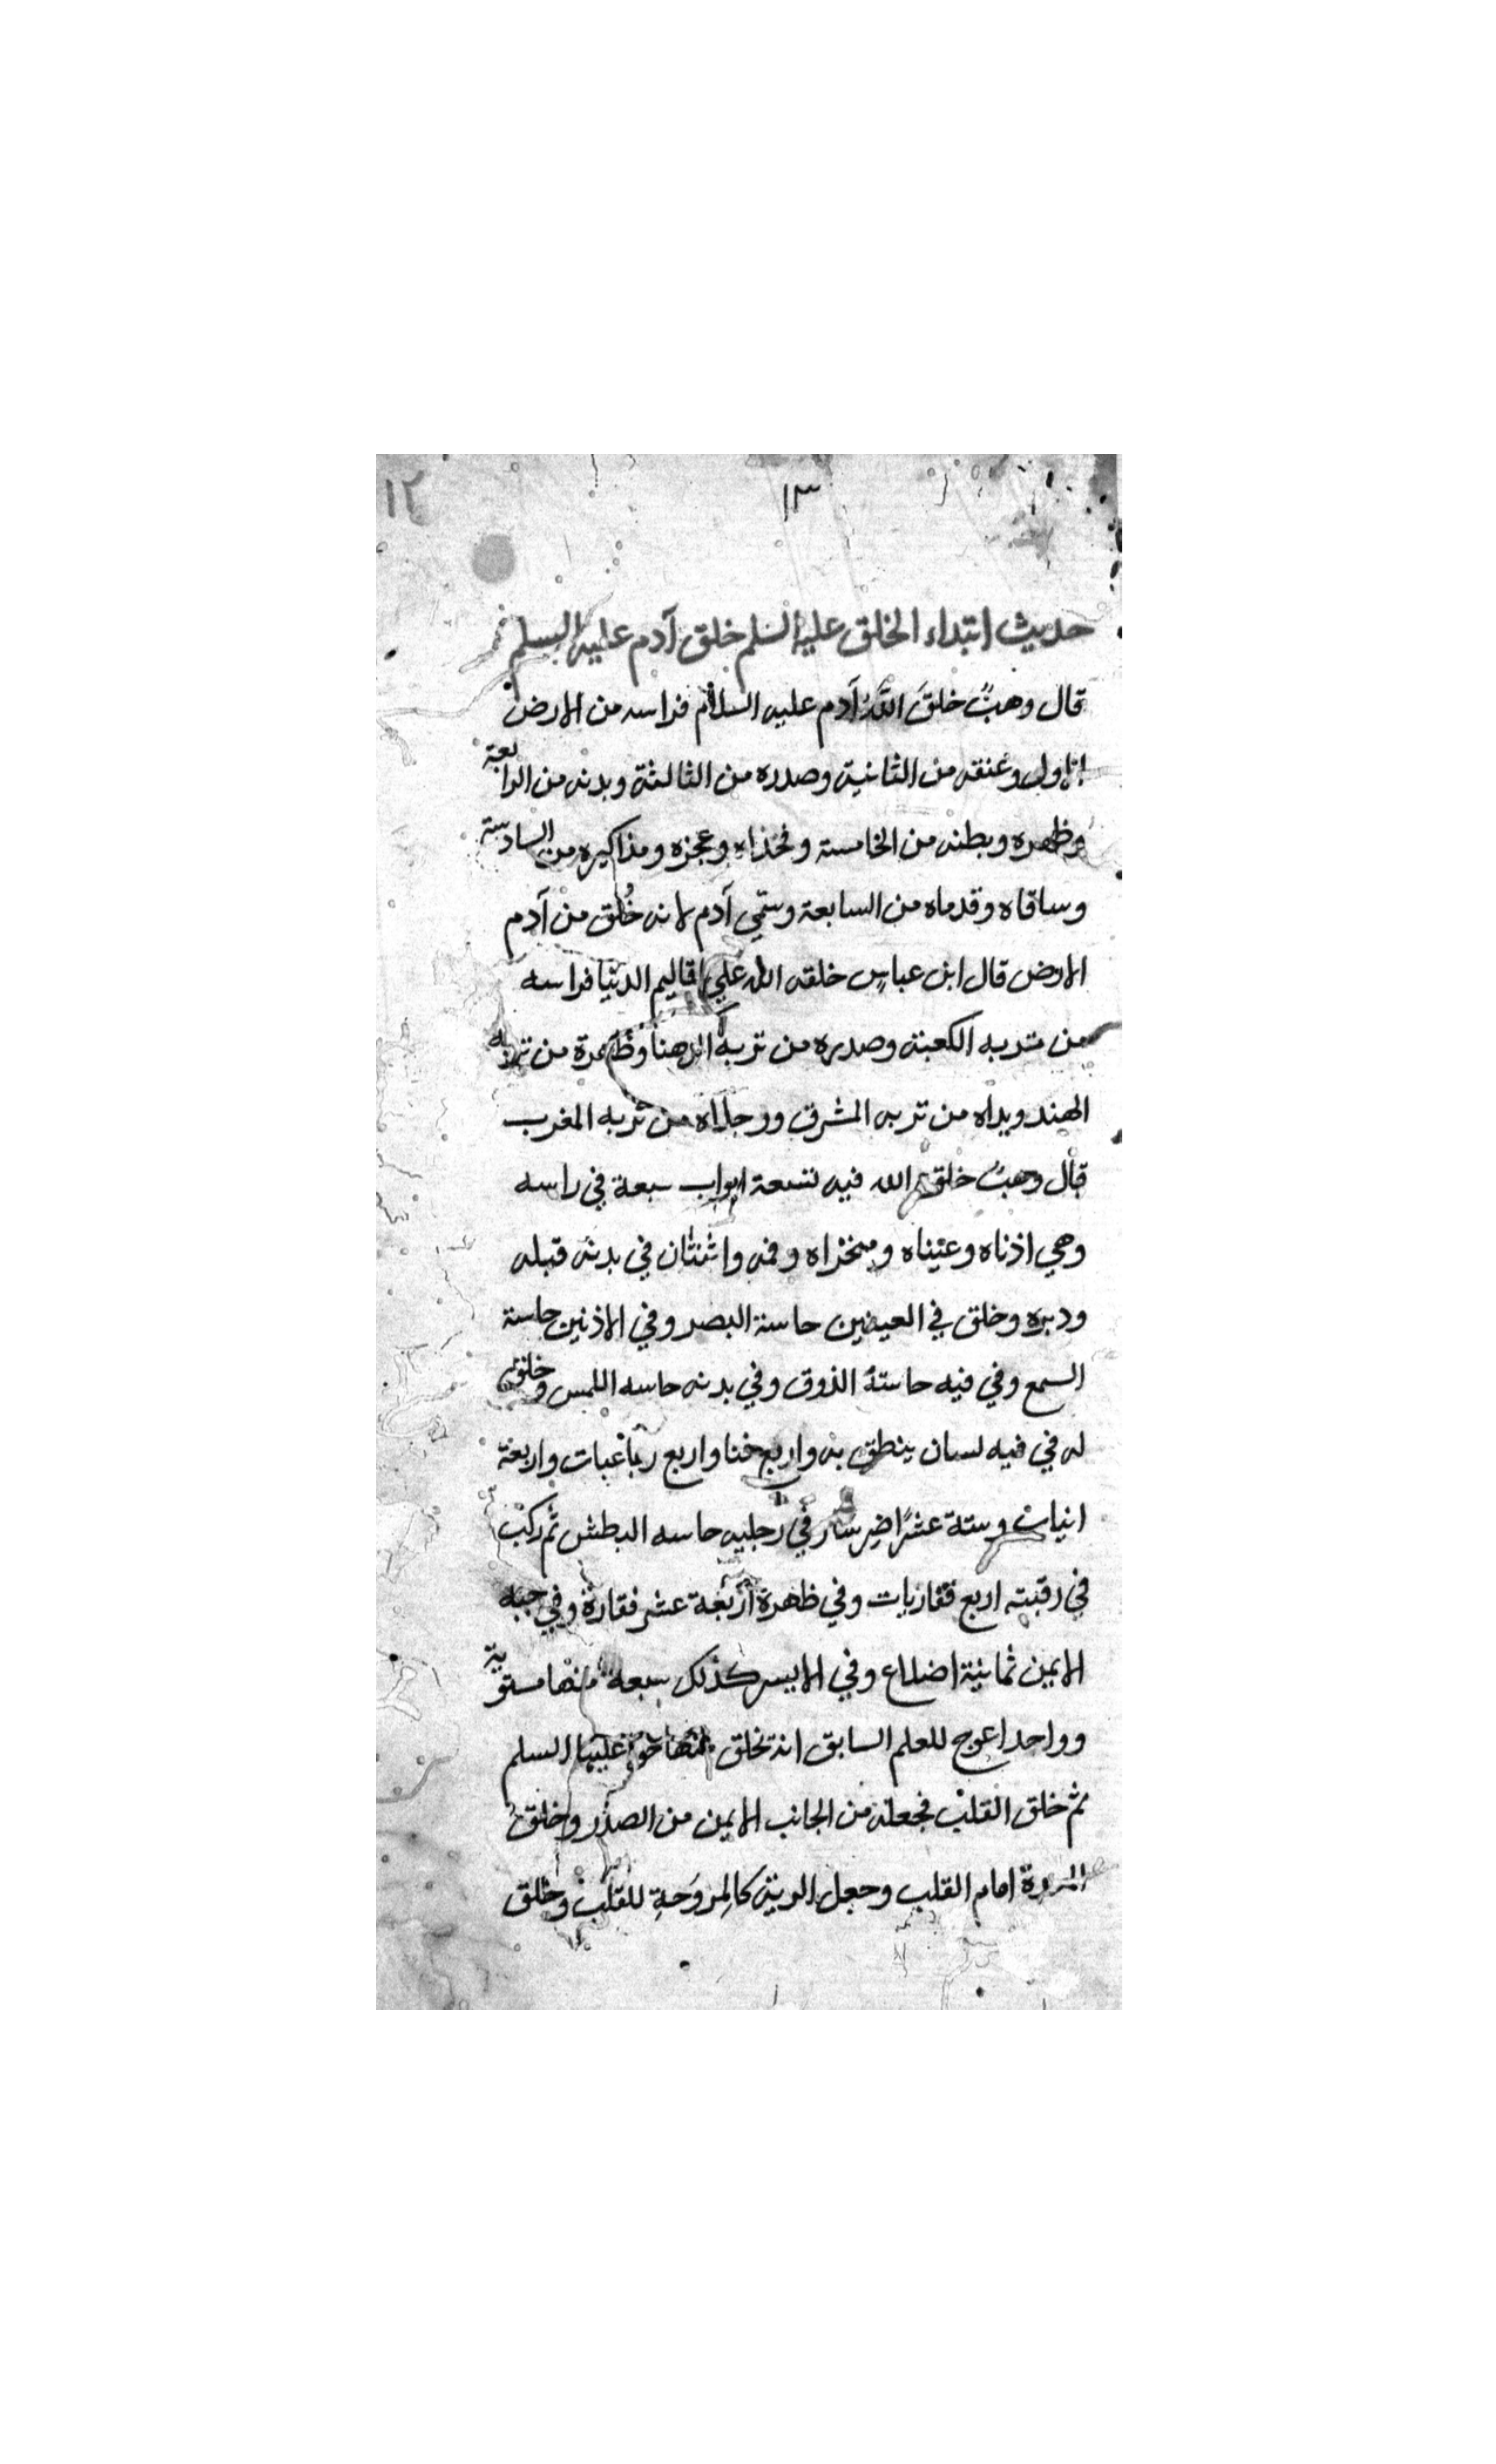 ١٢
١٣
حديث ابتداء الخلق عليه السلم خلق آدم عليه السلم
قال وهبٌ خلقَ اللهُ آدم عليه السلام فراسه من الارض
الاولى وعنقه من الثانية وصدره من الثالثة وبدنه من الرابعة
وظهره وبطنه من الخامسة وفخذاه وعجزه ومذاكيره من السادسة
وساقاه وقدماه من السابعة وسمّي آدم لانه خُلق من آدم
الارض قال ابن عباسٍ خلقه الله علي اقاليم الدنيا فراسه
من تربه الكعبة وصدره من تربه الدهنا وظهرة من تربه
الهند ويداه من تربه المشرق ورجلاه من تربه المغرب
قال وهبٌ خلق الله فيه تسعة ابواب سبعة في راسه
وهي اذناه وعيناه ومنخراه وفمه واثنتان في بدنه قبله
ودبره وخلق في العينين حاسة البصر وفي الاذنين حاسة
السمع وفي فيه حاسة الذوق وفي بدنه حاسه اللمس وخلق
له في فيه لسان ينطق به واربع ثنا واربع رباعيات واربعة
انيات وستة عشر اضرسا وفي رجليه حاسه البطش ثم ركب
في رقبته اربع فقاريات وفي ظهرة اربعة عشر فقارة وفي جنبه
الايمن ثمانية اضلاع وفي الايسر كذلك سبعة منها مستوية
وواحد اعوج للعلم السابق انه تخلق منها حوّا عليها السلم
ثم خلق القلب فجعله من الجانب الايمن من الصدر وخلق
امام القلب وجعل الرية كالمروَحةِ للقلب وخلق